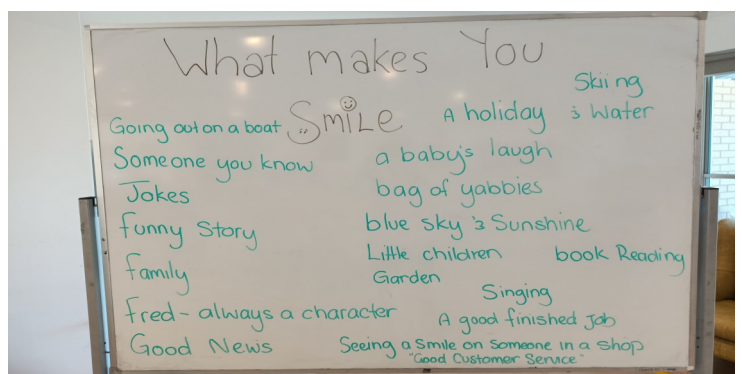 What makes You
SmiLe
Going out on a boat
Someone you know
Jokes
funny Story
family
Fred - always a character
Good News
Skiing
A holiday & Water
a baby's laugh
bag of yabbies
blue sky & Sunshine
Little children
book Reading
Garden
Singing
A good finished Job
Seeing a Smile on Someone in a Shop
"Good Customer Service"